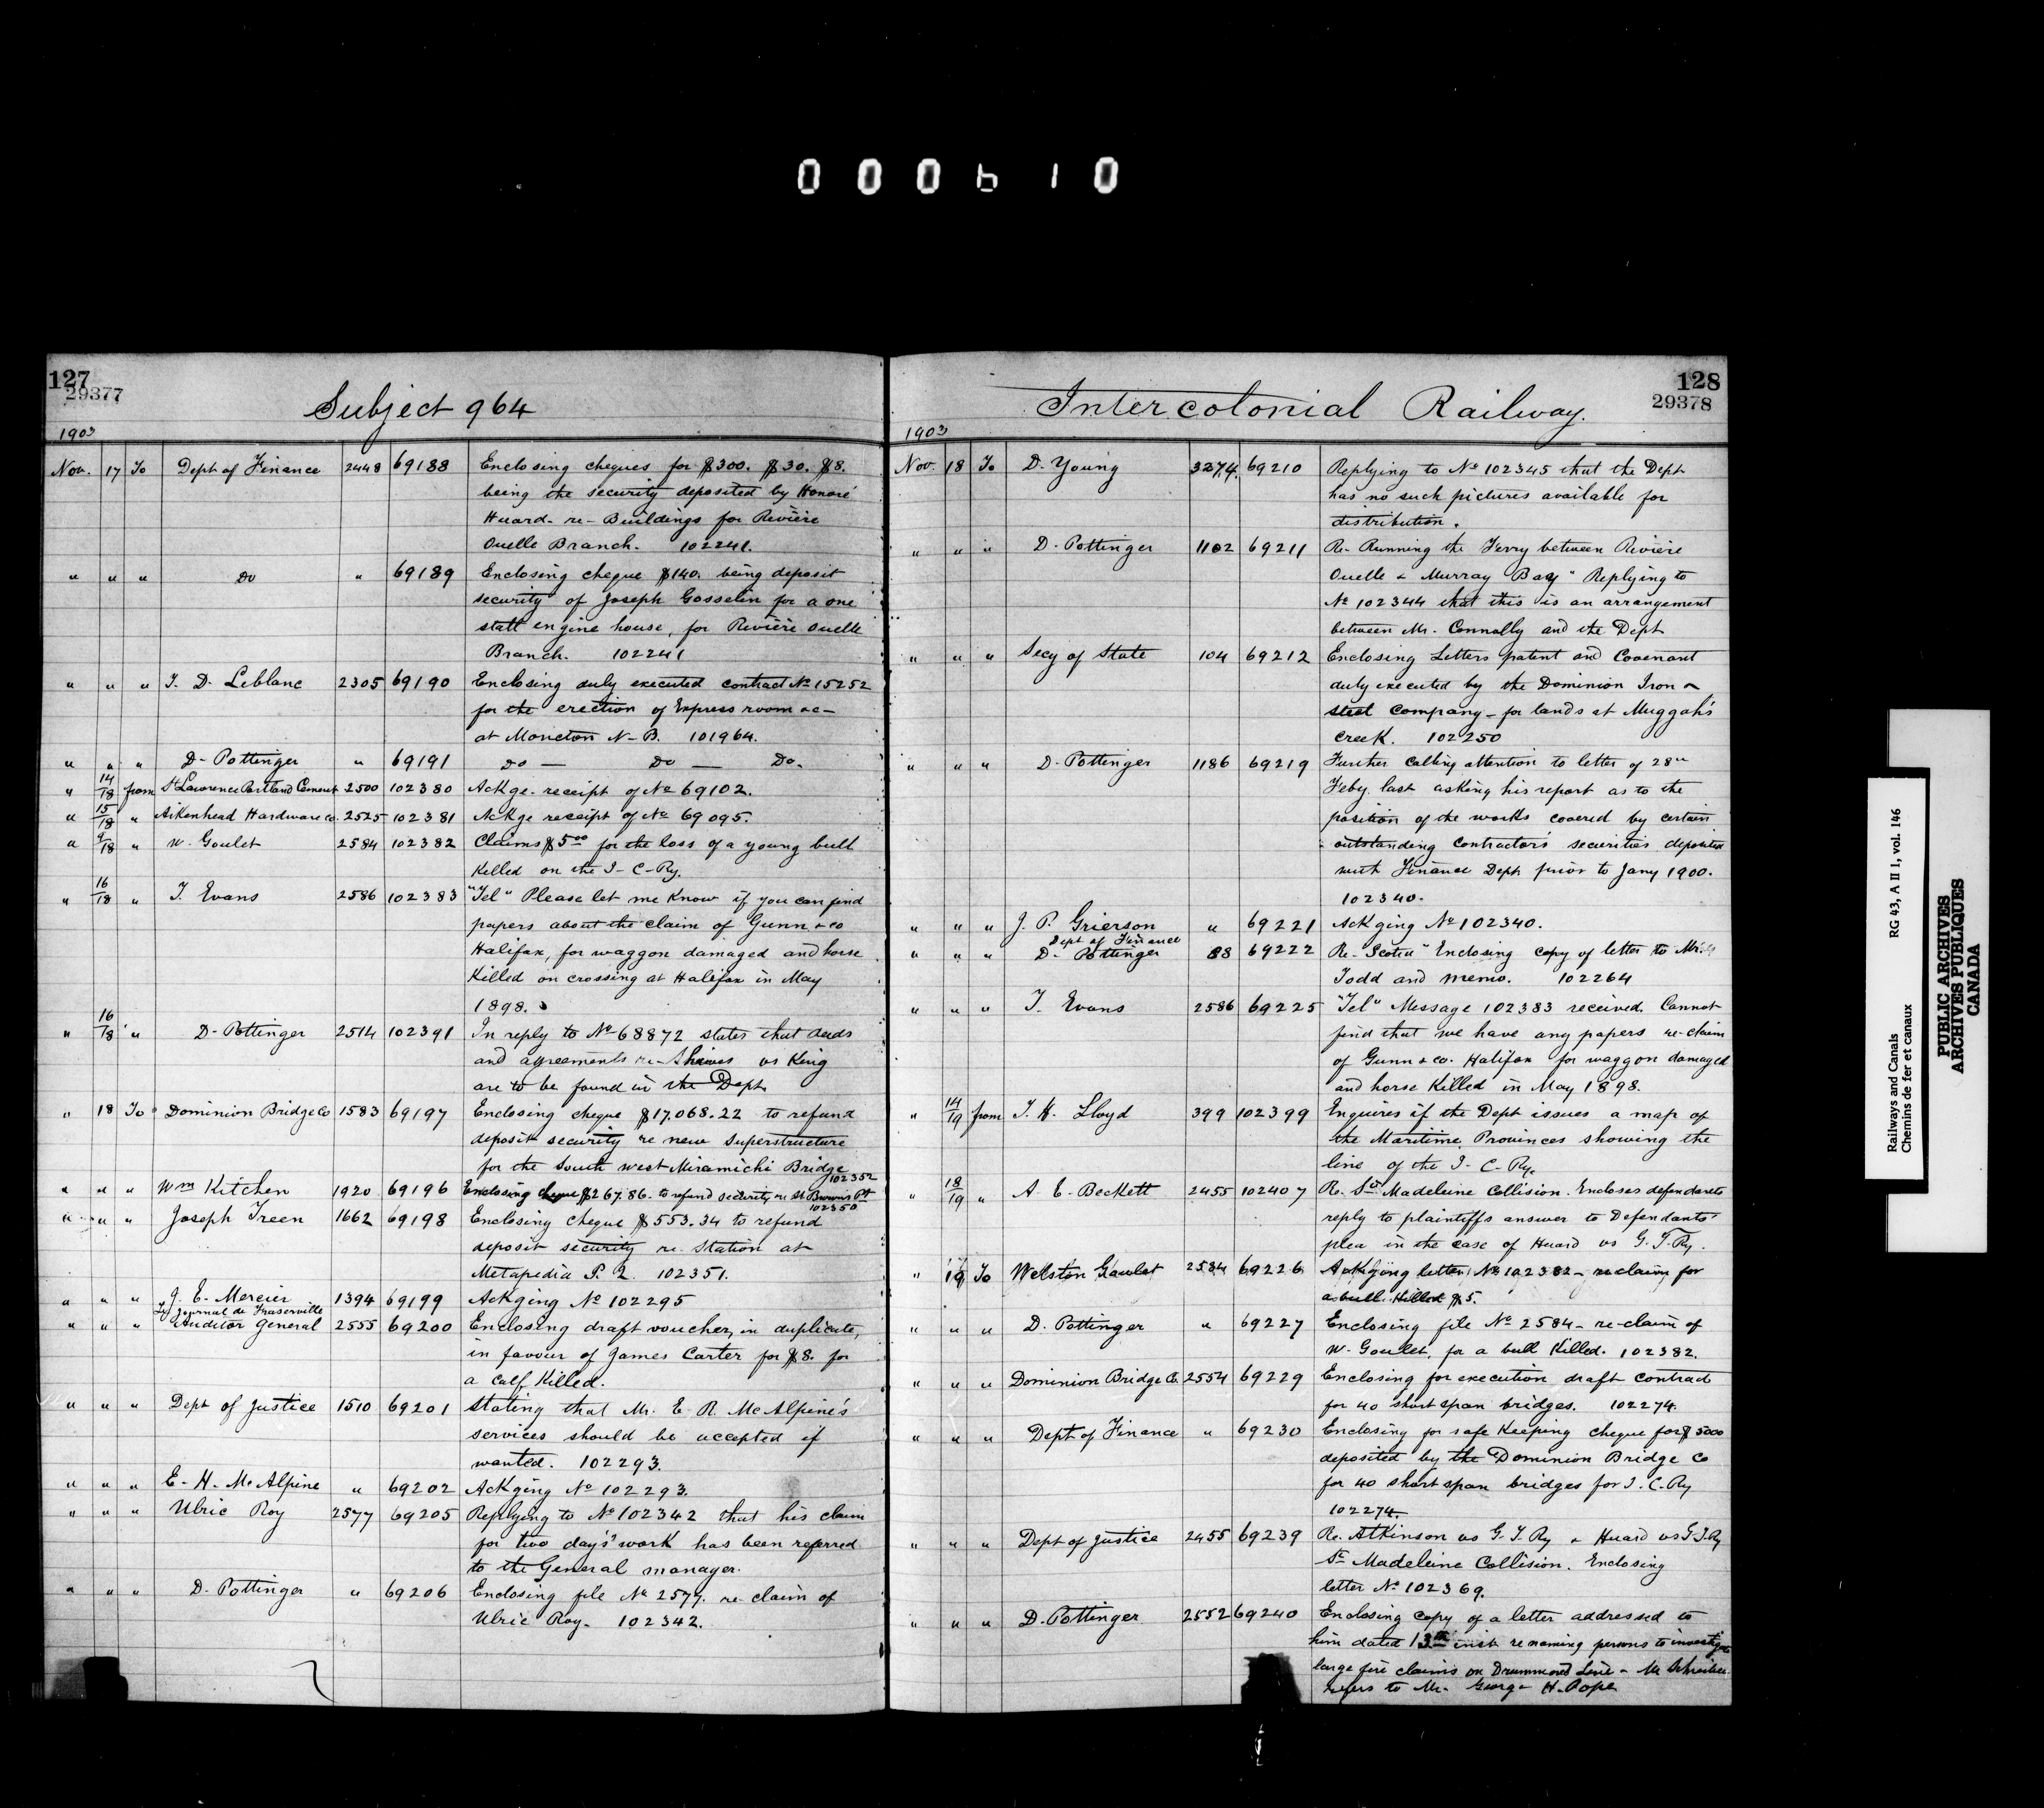 000610
127
29377
Subject 964
1903
Nov. 17 To Dept of Finance 2448 69188 Enclosing cheques for $300. $30. $8.
being the security deposited by Honoré
Huard- re- Buildings for Rivière
Ouelle Branch. 102241.
" " " Do " 69189 Enclosing cheque $140. being deposit
security of Joseph Gosselin for a one
stall engine house, for Rivière Ouelle
Branch. 102241
" " " T. D. Leblanc 2305 69190 Enclosing duly executed contract No 15252
for the erection of Express room &c-
at Moncton N-B. 101964.
" " " D- Pottinger " 69191 Do — Do — Do.
" 14/18 from St Lawrence Portland Cement 2500 102380 Ackge- receipt of No 69102.
" 15/18 " Aikenhead Hardware Co. 2525 102381 Ackge receipt of No 69095.
" 9/18 " W. Goulet 2584 102382 Claims $5 00 for the loss of a young bull
Killed on the I-C-Ry.
" 16/18 " T. Evans 2586 102383 "Tel" Please let me know if you can find
papers about the claim of Gunn & Co
Halifax, for waggon damaged and horse
Killed on crossing at Halifax in May
1898.
" 16/18 " D- Pottinger 2514 102391 In reply to No 68872 states that deeds
and agreements re- Shives vs King
are to be found in the Dept.
" 18 To Dominion Bridge Co 1583 69197 Enclosing cheque $17,068.22 to refund
deposit security re new Superstructure
for the South west Miramichi Bridge
102352
" " " Wm Kitchen 1920 69196 Enclosing cheque $267.86- to refund security re St Browns Pt
102350
" " " Joseph Treen 1662 69198 Enclosing cheque $553.34 to refund
deposit security re- Station at
Metapedia P.Q. 102351.
" " " J. E. Mercier 1394 69199 Ackging No 102295
Le Journal de Fraserville
" " " Auditor General 2555 69200 Enclosing draft voucher, in duplicate,
in favour of James Carter for $8. for
a calf Killed.
" " " Dept of Justice 1510 69201 Stating that Mr. E. R. McAlpine's
services should be accepted if
wanted. 102293.
" " " E- H. McAlpine " 69202 Ackging No 102293.
" " " Ulric Roy 2577 69205 Replying to No 102342 that his claim
for two day's work has been referred
to the General manager.
" " " D. Pottinger " 69206 Enclosing file No 2577. re- claim of
Ulric Roy- 102342.
128
29378
Intercolonial Railway.
1903
Nov. 18 To D. Young 3274. 69210 Replying to No 102345 that the Dept
has no such pictures available for
distribution.
" " " D- Pottinger 1102 69211 Re- Running the Ferry between Rivière
Ouelle & Murray Bay" Replying to
No 102344 that this is an arrangement
between Mr. Connolly and the Dept
" " " Secy of State 104 69212 Enclosing Letters patent and Covenant
duly executed by the Dominion Iron &
Steel Company- for lands at Muggah's
Creek. 102250
" " " D. Pottinger 1186 69219 Further calling attention to letter of 28th
Feby. last asking his report as to the
position of the works covered by certain
outstanding contractors securities deposited
with Finance Dept prior to Jany 1900.
102340.
" " " J. P. Grierson " 69221 Ackging No 102340.
Dept of Finance
" " " D. Pottinger 88 69222 Re- Scotia" Enclosing copy of letter to Mr.
Todd and memo. 102264
" " " T. Evans 2586 69225 "Tel" Message 102383 received. Cannot
find that we have any papers re-claim
of Gunn & Co. Halifax for waggon damaged
and horse Killed in May 1898.
" 14/19 from T. H. Lloyd 399 102399 Enquires if the Dept issues a map of
the Maritime Provinces showing the
line of the I- C- Ry.
" 18/19 " A. E. Beckett 2455 102407 Re. Ste Madeleine Collision. Encloses defendants
reply to plaintiffs answer to Defendants'
plea in the case of Huard vs G.T.Ry.
" 19 To Welston Goulet 2584 69226 Ackging letter No 102382- re claim for
a bull Killed $5.
" " " D. Pottinger " 69227 Enclosing file No 2584- re-claim of
W. Goulet, for a bull Killed. 102382.
" " " Dominion Bridge Co. 2554 69229 Enclosing for execution draft contract
for 40 short span bridges. 102274.
" " " Dept of Finance " 69230 Enclosing for safe Keeping cheque for $5000
deposited by the Dominion Bridge Co
for 40 short span bridges for I.C.Ry
102274.
" " " Dept of Justice 2455 69239 Re- Atkinson vs G.T.Ry & Huard vs G.T.Ry
Ste Madeleine Collision. Enclosing
letter No 102369.
" " " D. Pottinger 2552 69240 Enclosing copy of a letter addressed to
him dated 13th inst. re naming persons to investigate
large fire claims on Drummond Line- Mr Schreiber
refers to Mr. George H. Pope
Railways and Canals RG 43, A II 1, vol. 146
Chemins de fer et canaux
PUBLIC ARCHIVES
ARCHIVES PUBLIQUES
CANADA